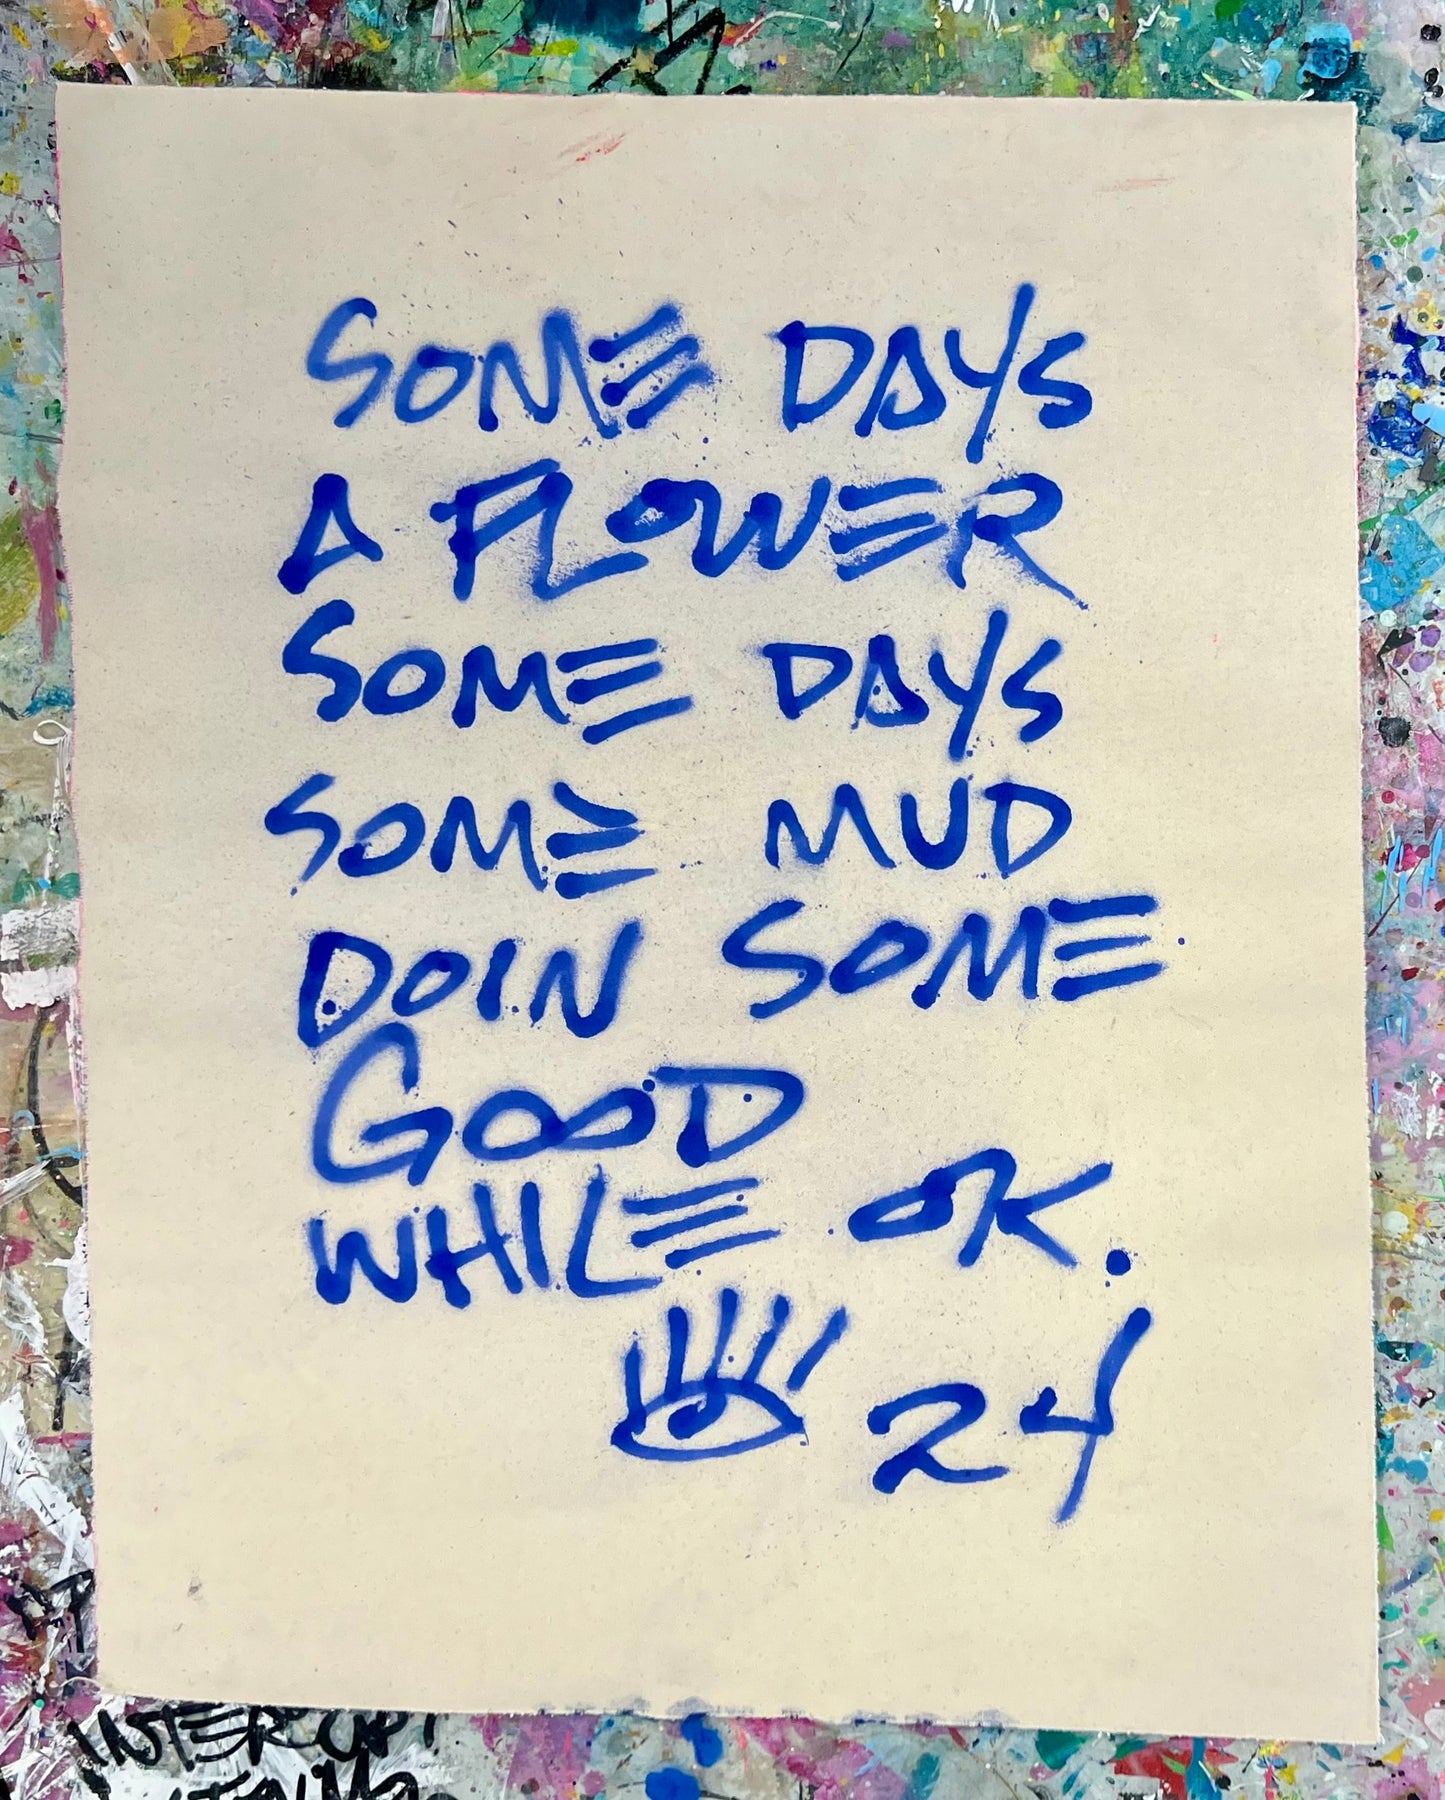 SOME DAYS
A FLOWER
SOME DAYS
SOME MUD
DOIN SOME
GOOD
WHILE OK.
24